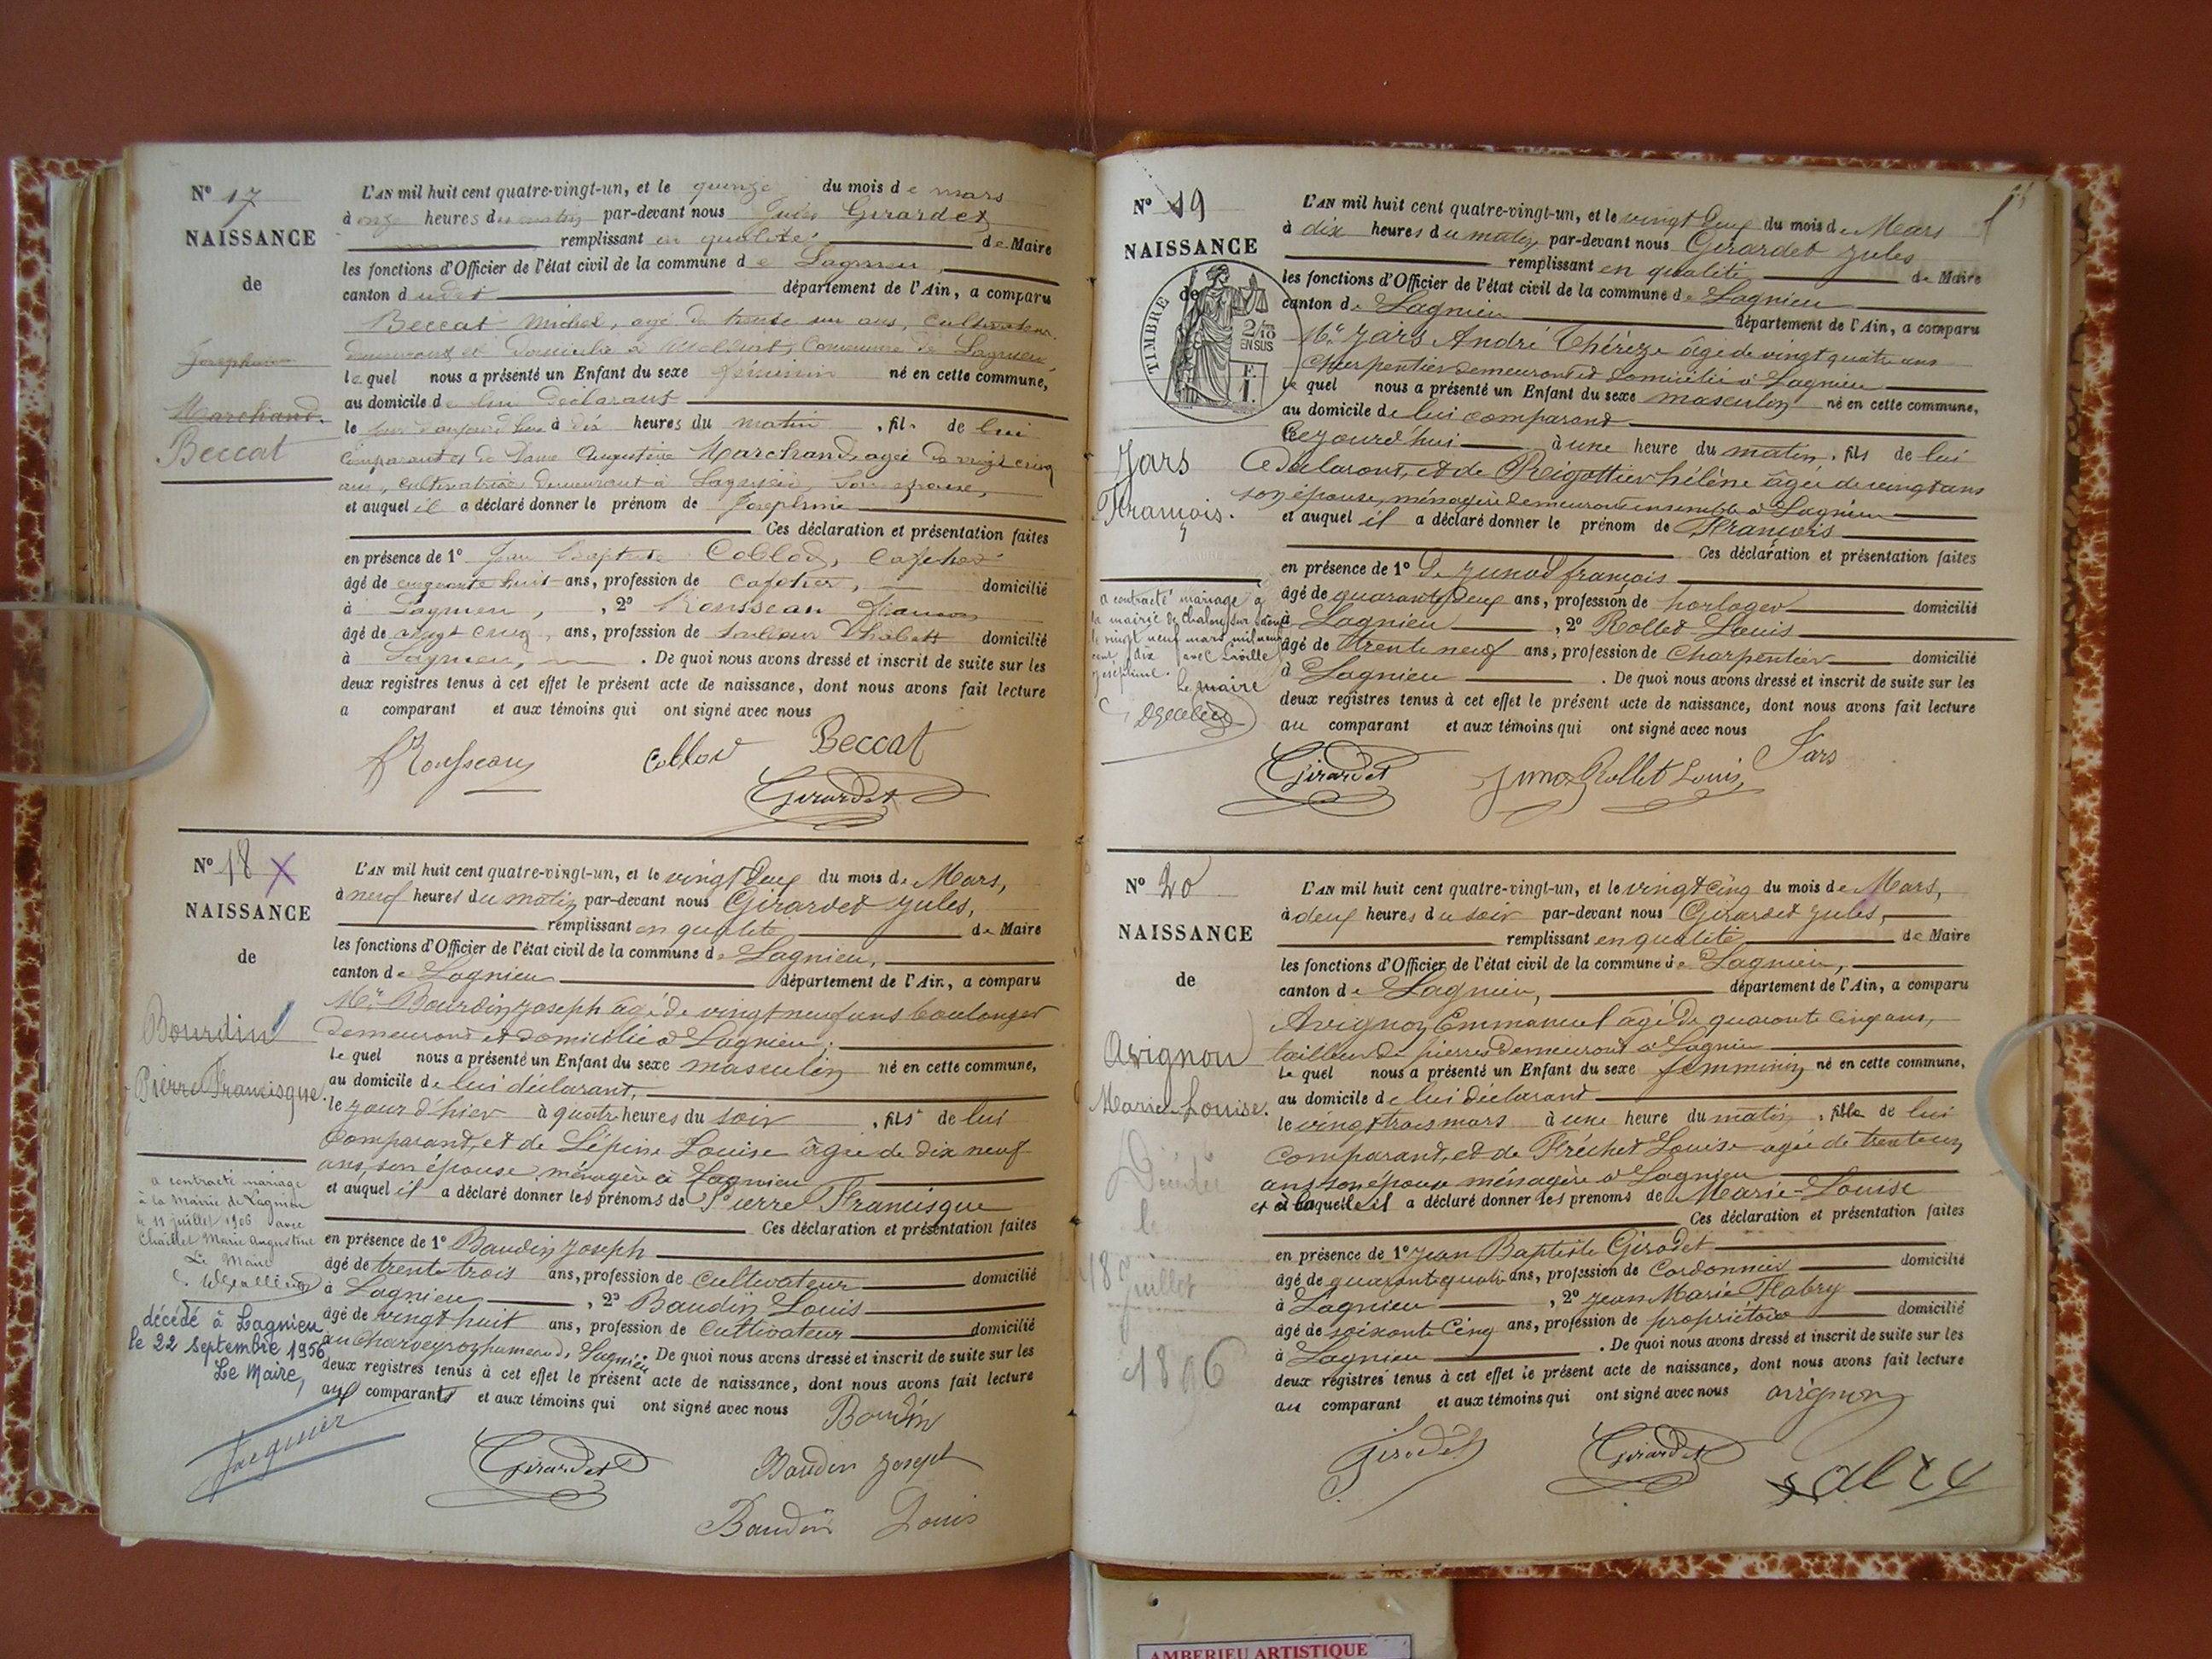 N° 17
NAISSANCE
de
Josephine
Marchand.
Beccat
L'AN mil huit cent quatre-vingt-un, et le quinze du mois de mars
à onze heures du matin par-devant nous Jules Girardet
remplissant en qualité de Maire
les fonctions d'Officier de l'état civil de la commune de Lagnieu,
canton dudit département de l'Ain, a comparu
Beccat Michel, agé de trente un ans, Cultivateur
demeurant et domicilié à Commune de Lagnieu,
lequel nous a présenté un Enfant du sexe féminin né en cette commune,
au domicile de lui Déclarant
le jour d'aujourd'hui à dix heures du matin , fil de lui
comparant et de Dame Augustine Marchand, agée de vingt cinq
ans, cultivatrice demeurant à Lagnieu, Son épouse,
et auquel il a déclaré donner le prénom de Josephine
Ces déclaration et présentation faites
en présence de 1° Jean Baptiste Collod, Cafetier
âgé de cinquante huit ans, profession de Cafetier, domicilié
à Lagnieu, , 2° Rousseau François
âgé de vingt cinq, ans, profession de domicilié
à Lagnieu, . De quoi nous avons dressé et inscrit de suite sur les
deux registres tenus à cet effet le présent acte de naissance, dont nous avons fait lecture
a comparant et aux témoins qui ont signé avec nous
Rousseau Collod Beccat
Girardet
N° 18 X
NAISSANCE
de
Bourdin
Pierre Francisque.
a contracté mariage
à la Mairie de Lagnieu
le 11 juillet 1906 avec
Chaillet Marie Augustine
Le Maire
décédé à Lagnieu
le 22 septembre 1956
Le Maire,
Jacquier
L'AN mil huit cent quatre-vingt-un, et le vingt Deux du mois de Mars,
à neuf heures du matin par-devant nous Girardet Jules,
remplissant en qualité de Maire
les fonctions d'Officier de l'état civil de la commune de Lagnieu,
canton de Lagnieu département de l'Ain, a comparu
Mr. Bourdin Joseph âgé de vingt neuf ans boulanger
demeurant et domicilié à Lagnieu,
lequel nous a présenté un Enfant du sexe masculin né en cette commune,
au domicile de lui déclarant,
le jour d'hier à quatre heures du soir , fils de lui
comparant, et de Lépine Louise âgée de dix neuf
ans, son épouse, ménagère à Lagnieu
et auquel il a déclaré donner les prénoms de Pierre Francisque
Ces déclaration et présentation faites
en présence de 1° Baudin Joseph
âgé de trente trois ans, profession de Cultivateur domicilié
à Lagnieu , 2° Baudin Louis
âgé de vingt huit ans, profession de Cultivateur domicilié
au Charveyron hameau de Lagnieu. De quoi nous avons dressé et inscrit de suite sur les
deux registres tenus à cet effet le présent acte de naissance, dont nous avons fait lecture
aux comparants et aux témoins qui ont signé avec nous Bourdin
Girardet Baudin Joseph
Baudin Louis
N° 19
NAISSANCE
de
TIMBRE
2/10 EN SUS
F.
1.
Jars
François.
a contracté mariage à
la mairie de Chalon sur Saône
le vingt neuf mars mil neuf
cent dix avec
Joséphine.
Le maire
L'AN mil huit cent quatre-vingt-un, et le vingt Deux du mois de Mars
à dix heures du matin par-devant nous Girardet Jules
remplissant en qualité de Maire
les fonctions d'Officier de l'état civil de la commune de Lagnieu
canton de Lagnieu département de l'Ain, a comparu
Mr. Jars André Thérèze âgé de vingt quatre ans
Charpentier demeurant et domicilié à Lagnieu
lequel nous a présenté un Enfant du sexe masculin né en cette commune,
au domicile de lui comparant
Cejourd'hui à une heure du matin , fils de lui
déclarant, et de Rigottier hélène âgée de vingt ans
son épouse, ménagère demeurant ensemble à Lagnieu
et auquel il a déclaré donner le prénom de François
Ces déclaration et présentation faites
en présence de 1° Junod françois
âgé de quarante Deux ans, profession de horloger domicilié
à Lagnieu , 2° Rollet Louis
âgé de trente neuf ans, profession de Charpentier domicilié
à Lagnieu . De quoi nous avons dressé et inscrit de suite sur les
deux registres tenus à cet effet le présent acte de naissance, dont nous avons fait lecture
au comparant et aux témoins qui ont signé avec nous Jars
Girardet Junod Rollet Louis
N° 20
NAISSANCE
de
Avignon
Marie-Louise.
Décédée
le
18 Juillet
1896
L'AN mil huit cent quatre-vingt-un, et le vingt Cinq du mois de Mars,
à deux heures du soir par-devant nous Girardet Jules,
remplissant en qualité de Maire
les fonctions d'Officier de l'état civil de la commune de Lagnieu,
canton de Lagnieu, département de l'Ain, a comparu
Avignon Emmanuel âgé de quarante Cinq ans,
tailleur de pierres demeurant à Lagnieu
lequel nous a présenté un Enfant du sexe femminin né en cette commune,
au domicile de lui déclarant
le vingt trois mars à une heure du matin , fille de lui
Comparant, et de Fréchet Louise agée de trente un
ans son épouse ménagère à Lagnieu
et à laquelle il a déclaré donner les prenoms de Marie-Louise
Ces déclaration et présentation faites
en présence de 1° Jean Baptiste Girodet
âgé de quarante quatre ans, profession de Cordonnier domicilié
à Lagnieu , 2° Jean Marie Fabry
âgé de soixante Cinq ans, profession de propriétaire domicilié
à Lagnieu . De quoi nous avons dressé et inscrit de suite sur les
deux registres tenus à cet effet le présent acte de naissance, dont nous avons fait lecture
au comparant et aux témoins qui ont signé avec nous avignon
Girodet Girardet
AMBERIEU ARTISTIQUE